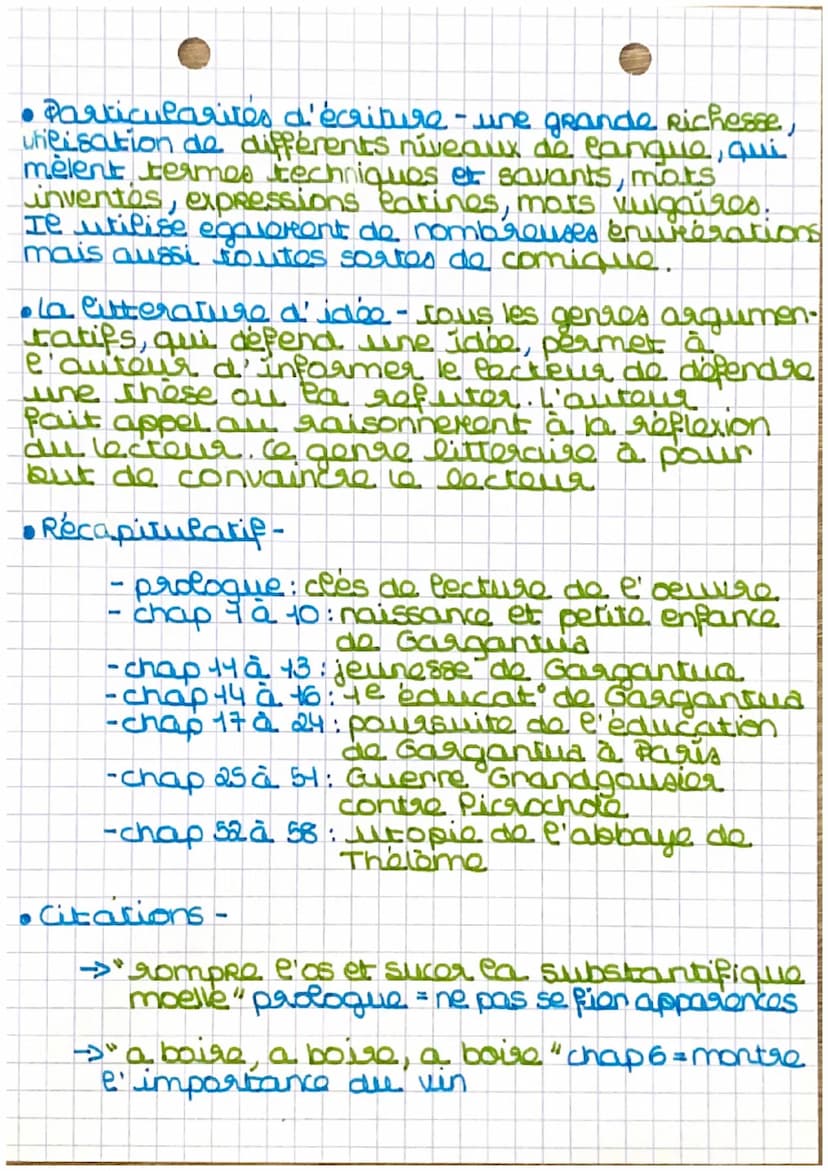 • Particularités d'écriture - une grande Richesse,
utilisation de différents niveaux de langue, qui
mêlent termes techniques et savants, mots
inventés, expressions latines, mots vulgaires.
Il utilise egalement de nombreuses énumérations
mais aussi toutes sortes de comique.
• La litterature d'idée - tous les genres argumen-
tatifs, qui défend une idée, permet à
l'auteur d'informer le lecteur de défendre
une thèse ou la refuter. L'auteur
fait appel au raisonnement à la réflexion
du lecteur. Ce genre litteraire à pour
but de convaincre le lecteur
• Récapitulatif -
- prologue : clés de lecture de l'oeuvre
- chap 1 à 10 : naissance et petite enfance
de Gargantua
- chap 11 à 13 : jeunesse de Gargantua
- chap 14 à 16 : 1e éducat° de Gargantua
- chap 17 à 24 : poursuite de l'éducation
de Gargantua à Paris
- chap 25 à 51 : Guerre Grandgousier
contre Picrochole
- chap 52 à 58 : utopie de l'abbaye de
Thélème
• Citations -
→ "rompre l'os et sucer la substantifique
moelle" prologue = ne pas se fier apparences
→ "a boire, a boire, a boire" chap 6 = montre
l'importance du vin